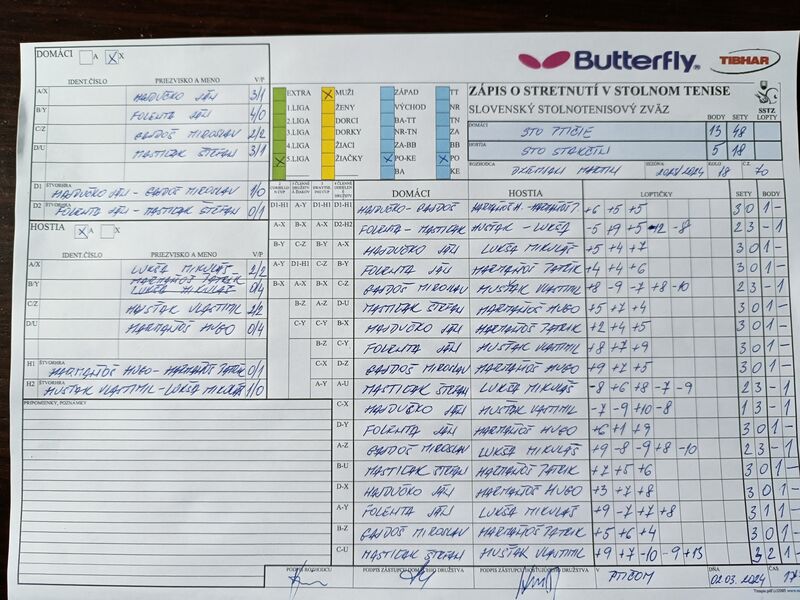 DOMÁCI A X X
Butterfly TIBHAR
IDENT.ČÍSLO PRIEZVISKO A MENO V/P
A/X HAJDUČKO JÁN 3/1
B/Y FOLENTA JÁN 4/0
C/Z GAJDOŠ MIROSLAV 2/2
D/U MASTIĽAK ŠTEFAN 3/1
D1 ŠTVORHRA HAJDUČKO JÁN - GAJDOŠ MIROSLAV 1/0
D2 ŠTVORHRA FOLENTA JÁN - MASTIĽAK ŠTEFAN 0/1
HOSTIA X A X
IDENT.ČÍSLO PRIEZVISKO A MENO V/P
A/X LUKŠA MIKULÁŠ 2/2
B/Y HARMAŇOŠ PATRIK 0/4
C/Z HUSŤAK VLASTIMIL 2/2
D/U HARMAŇOŠ HUGO 0/4
H1 ŠTVORHRA HARMAŇOŠ HUGO - HARMAŇOŠ PATRIK 0/1
H2 ŠTVORHRA HUSŤAK VLASTIMIL - LUKŠA MIKULÁŠ 1/0
PRIPOMIENKY, POZNÁMKY
EXTRA X MUŽI ZÁPAD TT
1.LIGA ŽENY VÝCHOD NR
2.LIGA DORCI BA-TT TN
3.LIGA DORKY NR-TN ZA
4.LIGA ŽIACI ZA-BB BB
X 5.LIGA ŽIAČKY X PO-KE X PO
BA KE
ZÁPIS O STRETNUTÍ V STOLNOM TENISE
SLOVENSKÝ STOLNOTENISOVÝ ZVÄZ SSTZ
BODY SETY LOPTY
DOMÁCI STO PTIČIE 13 48
HOSTIA 5 18
ROZHODCA SEZÓNA 2023/2024 KOLO 18 Č.Z. 70
DOMÁCI HOSTIA LOPTIČKY SETY BODY
D1-H1 A-Y D1-H1 D1-H1 HAJDUČKO - GAJDOŠ +6 +5 +5 3 0 1 -
A-X B-X A-X D2-H2 FOLENTA - MASTIĽAK HUSŤAK - LUKŠA -5 +9 +5 -12 -8 2 3 - 1
B-Y C-Z B-Y A-X HAJDUČKO JÁN LUKŠA MIKULÁŠ +5 +4 +7 3 0 1 -
A-Y D1-H1 C-Z B-Y FOLENTA JÁN HARMAŇOŠ PATRIK +4 +4 +6 3 0 1 -
B-X A-X B-X C-Z GAJDOŠ MIROSLAV HUSŤAK VLASTIMIL +8 -9 -7 +8 -10 2 3 - 1
B-Z A-Z D-U MASTIĽAK ŠTEFAN HARMAŇOŠ HUGO +5 +7 +4 3 0 1 -
C-Y C-Y B-X HAJDUČKO JÁN HARMAŇOŠ PATRIK +2 +4 +5 3 0 1 -
C-Y FOLENTA JÁN HUSŤAK VLASTIMIL +8 +7 +9 3 0 1 -
C-X D-Z GAJDOŠ MIROSLAV HARMAŇOŠ HUGO +9 +7 +5 3 0 1 -
A-Y A-U MASTIĽAK ŠTEFAN LUKŠA MIKULÁŠ -8 +6 +8 -7 -9 2 3 - 1
C-X HAJDUČKO JÁN HUSŤAK VLASTIMIL -7 -9 +10 -8 1 3 - 1
D-Y FOLENTA JÁN HARMAŇOŠ HUGO +6 +1 +9 3 0 1 -
A-Z GAJDOŠ MIROSLAV LUKŠA MIKULÁŠ +9 -8 -9 +8 -10 2 3 - 1
B-U MASTIĽAK ŠTEFAN HARMAŇOŠ PATRIK +7 +5 +6 3 0 1 -
D-X HAJDUČKO JÁN HARMAŇOŠ HUGO +3 +7 +8 3 0 1 -
A-Y FOLENTA JÁN LUKŠA MIKULÁŠ +9 -7 +7 +8 3 1 1 -
B-Z GAJDOŠ MIROSLAV HARMAŇOŠ PATRIK +5 +6 +4 3 0 1 -
C-U MASTIĽAK ŠTEFAN HUSŤAK VLASTIMIL +9 +7 -10 -9 +13 3 2 1 -
PODPIS ROZHODCU PODPIS ZÁSTUPCU DOMÁCEHO DRUŽSTVA PODPIS ZÁSTUPCU HOSŤUJÚCEHO DRUŽSTVA V PTIČOM DŇA 02.03.2024 ČAS